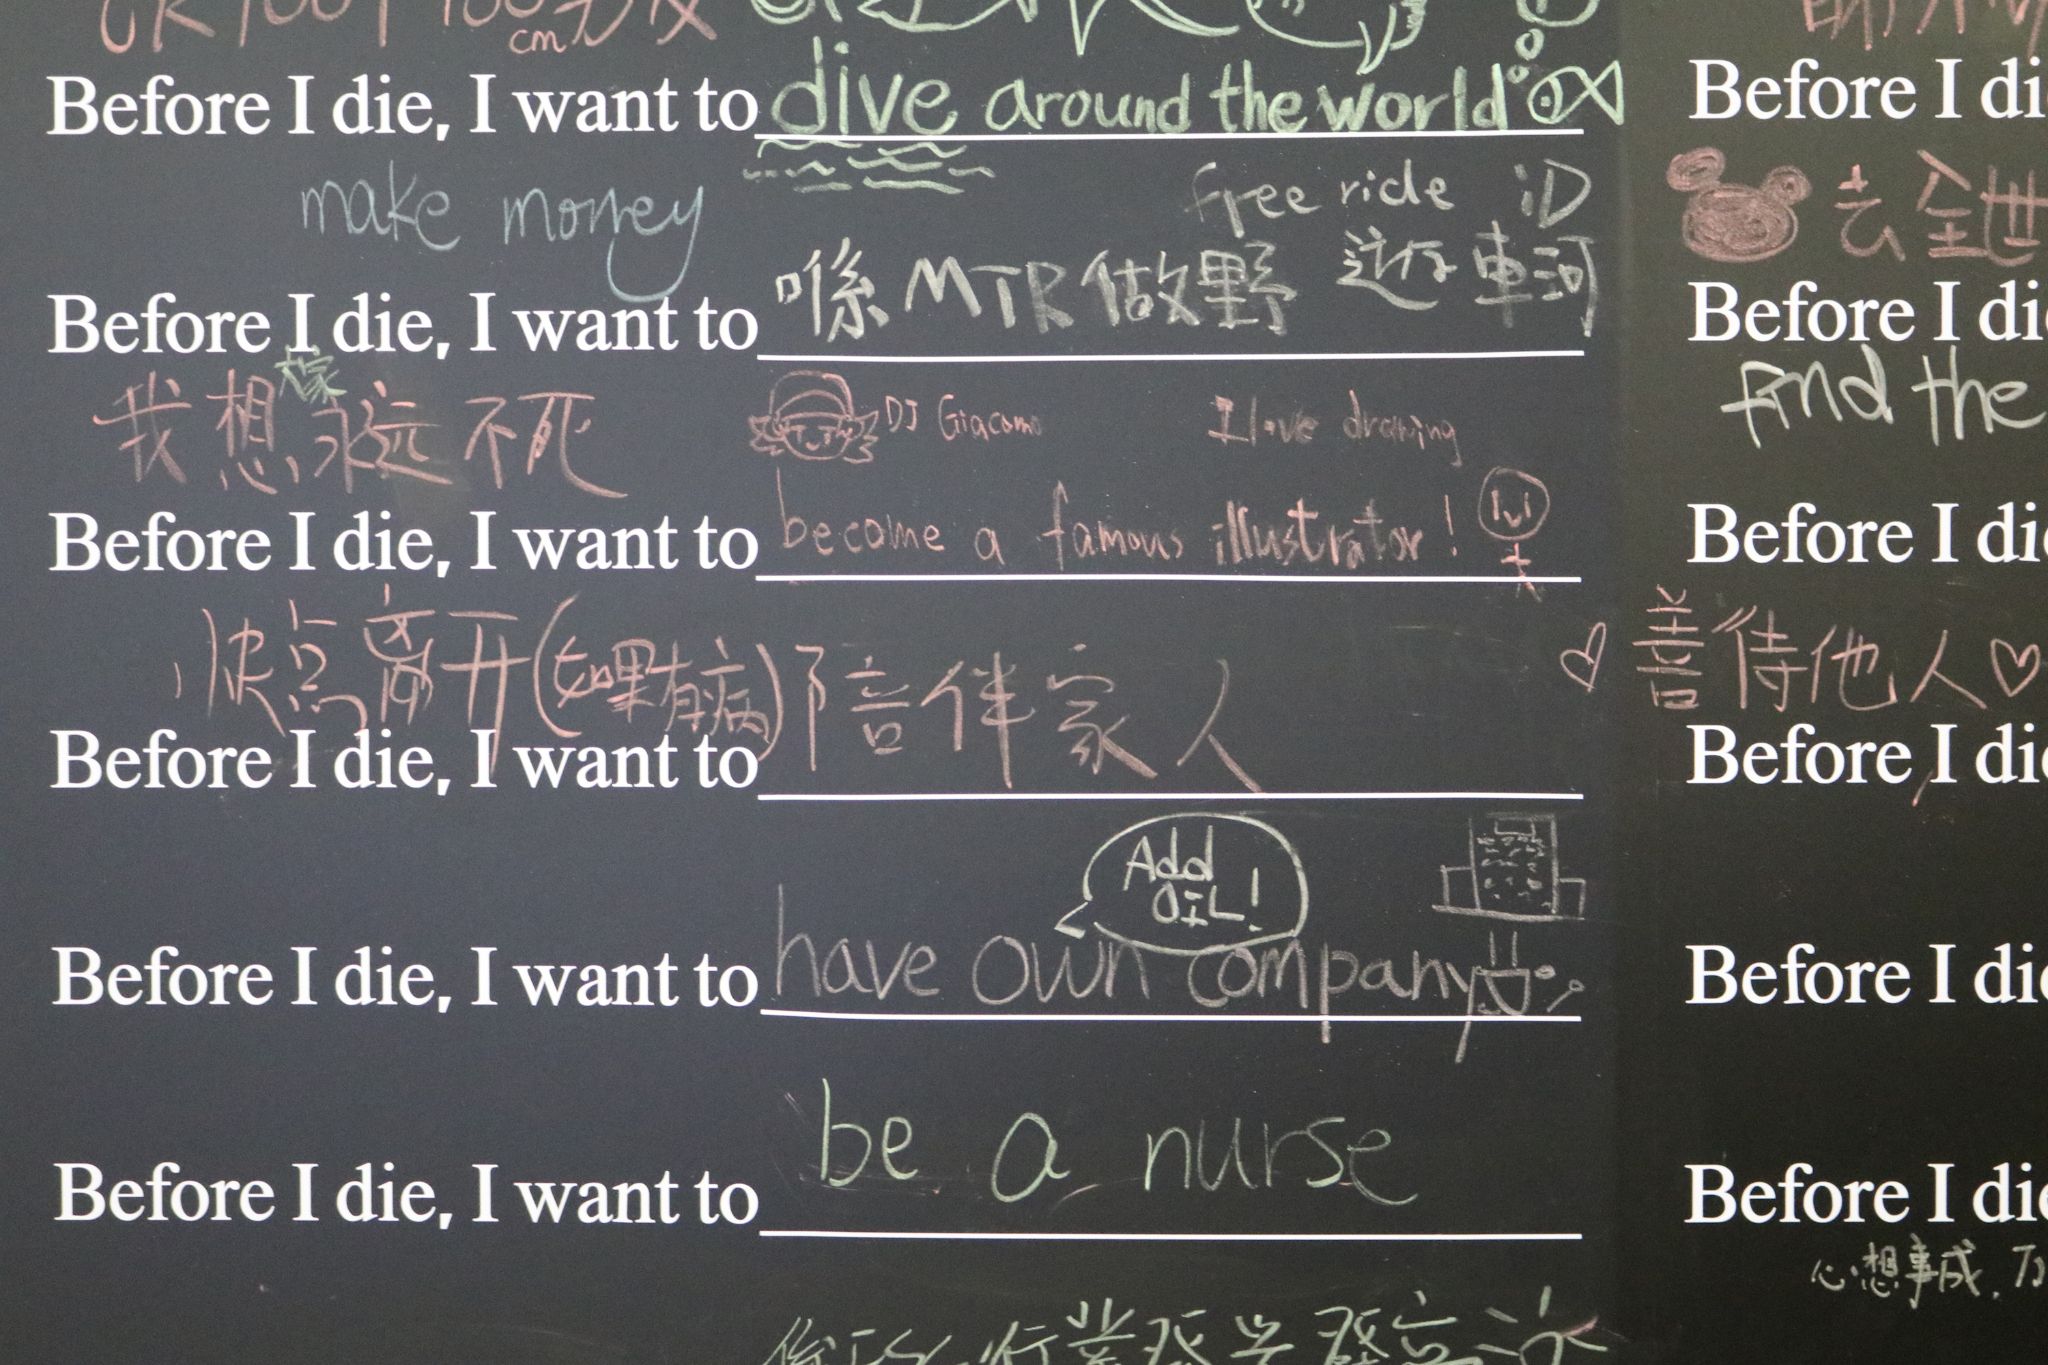 cm
Before I die, I want to dive around the world
make money
free ride :D
Before I die, I want to 喺MTR做嘢 遊車河
我想大家永远不死
DJ Giacomo I love drawing
Before I die, I want to become a famous illustrator!
快点离开(如果有病)陪伴家人
Before I die, I want to
Add OIL!
Before I die, I want to have own company
Before I die, I want to be a nurse
Before I die
去全世
Before I die
find the
Before I die
善待他人
Before I die
Before I die
Before I die
心想事成,万